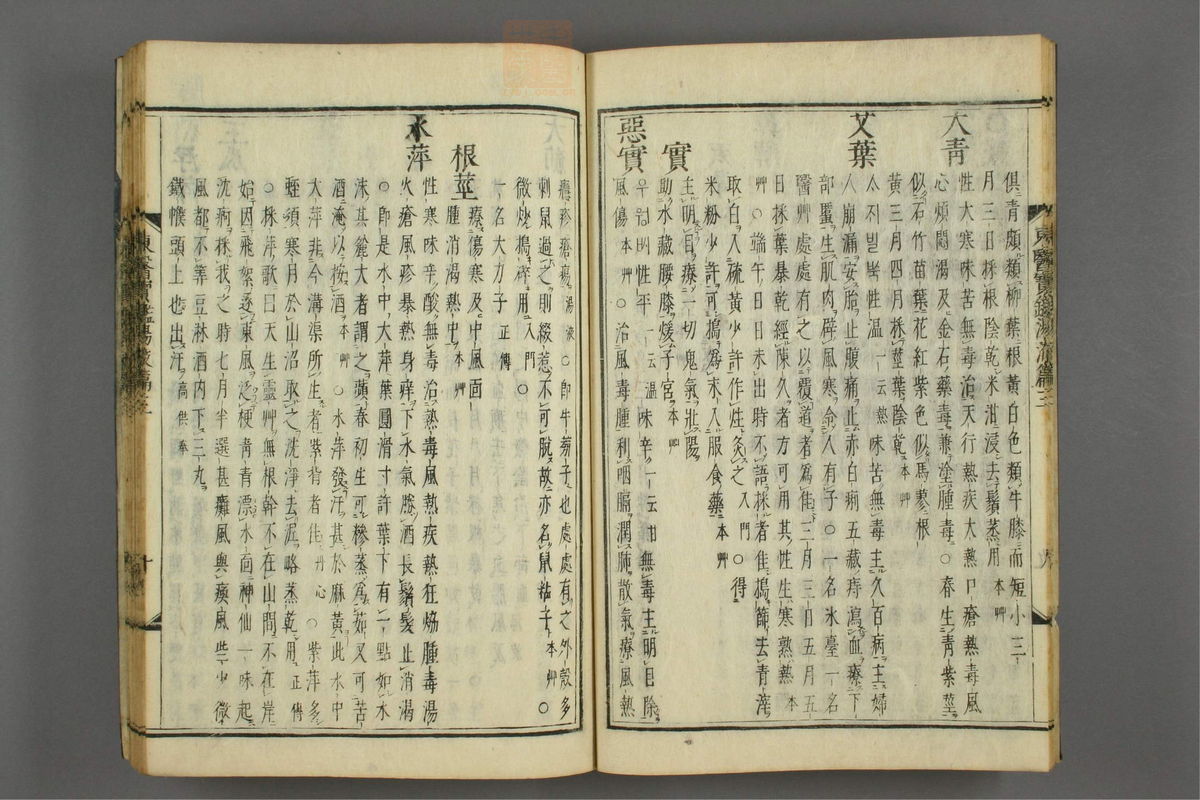 俱青頗類柳葉根黃白色類牛膝而短小三
月三日採根陰乾米泔浸去鬚蒸用本艸
大靑
性大寒味苦無毒治天行熱疾大熱口瘡熱毒風
心煩悶渴及金石藥毒兼塗腫毒○春生靑紫莖
似石竹苗葉花紅紫色似馬蓼根
黃三月四月採莖葉陰乾本艸
艾葉
性溫一云熱味苦無毒主久百病主婦
人崩漏安胎止腹痛止赤白痢五藏痔瀉血療下
部䘌生肌肉辟風寒令人有子○一名冰臺一名
醫艸處處有之以覆道者爲佳三月三日五月五
日採葉暴乾經陳久者方可用其性生寒熟熱本
艸○端午日日未出時不語採者佳搗篩去靑滓
取白入硫黃少許作炷灸之入門○得
米粉少許可搗爲末入服食藥本艸
實
主明目療一切鬼氣壯陽
助水藏腰膝煖子宮本艸
惡實
우웡씨性平一云溫味辛一云甘無毒主明目除
風傷本艸○治風毒腫利咽膈潤肺散氣療風熱
癮疹瘡瘍湯液○卽牛蒡子也處處有之外殼多
刺鼠過之則綴惹不可脫故亦名鼠粘子本艸○
微炒搗碎用入門○
一名大力子正傳
根莖
療傷寒及中風面
腫消渴熱中本艸
水萍
性寒味辛酸無毒治熱毒風熱疾熱狂熁腫毒湯
火瘡風疹暴熱身痒下水氣勝酒長鬚髮止消渴
○卽是水中大萍葉圓濶寸許葉下有一點如水
沫其麄大者謂之蘋春初生可糝蒸爲茹又可苦
酒淹以按酒本艸○水萍發汗甚於麻黃此水中
大萍非今溝渠所生者紫背者佳丹心○紫萍多
蛭須寒月於山沼取之洗淨去泥略蒸乾用正傳
○採萍歌曰天生靈艸無根幹不在山間不在岸
始因飛絮逐東風泛梗靑靑漂水面神仙一味起
沈痾採我之時七月半選甚癱風與瘓風些少微
風都不筭豆淋酒內下三丸
鐵幞頭上也出汗高供奉
東醫寶鑑湯液篇三
九
東醫寶鑑湯液篇三
十